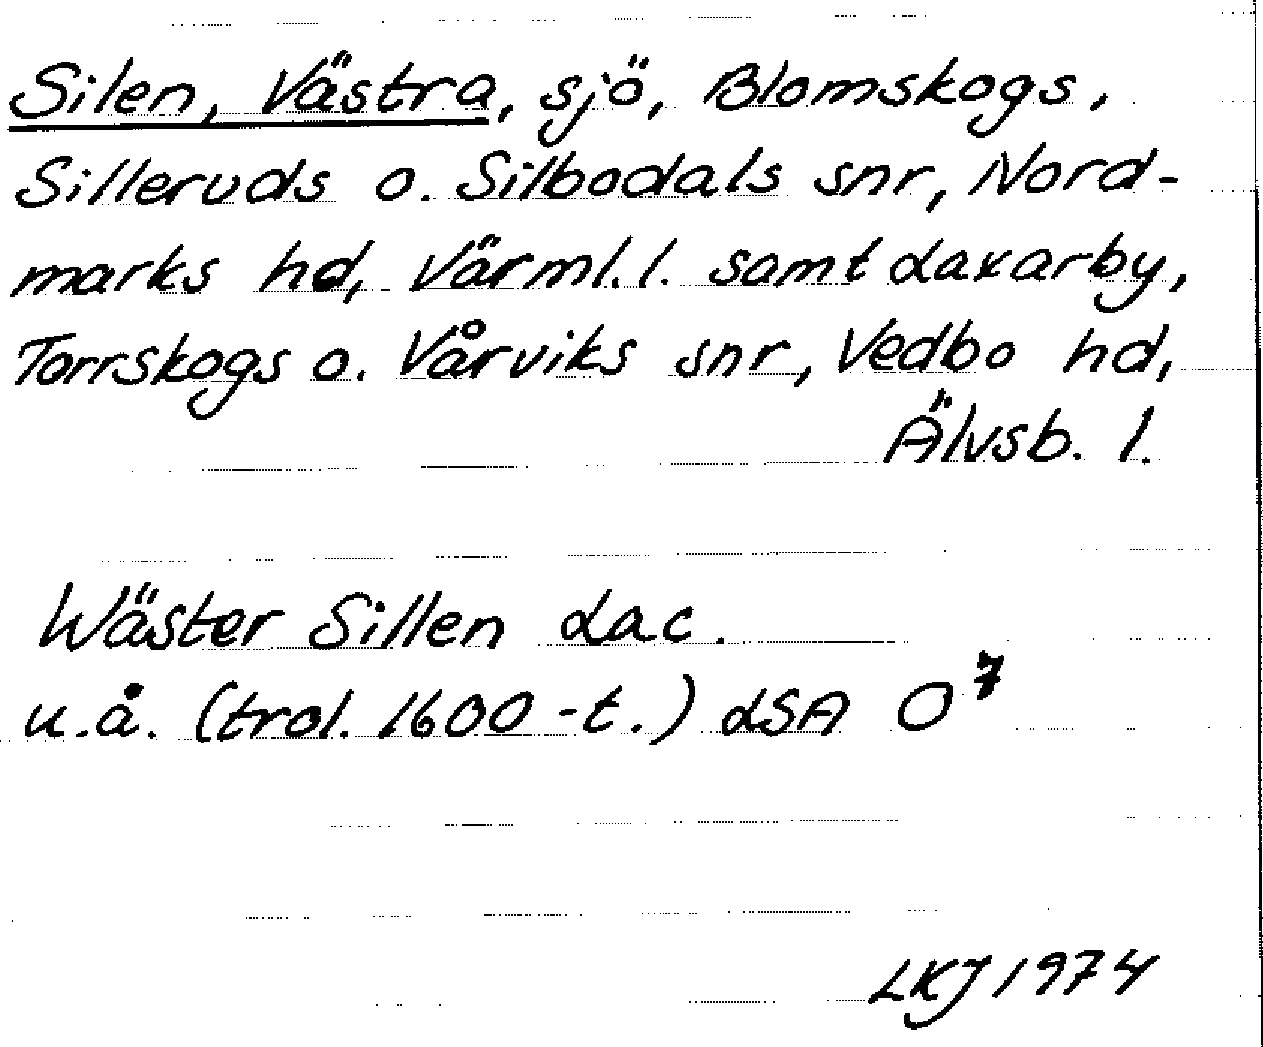 Silen, Västra, sjö, Blomskogs,
Silleruds o. Silbodals snr, Nord-
marks hd, Värml. l. samt Laxarby,
Torrskogs o. Vårviks snr, Vedbo hd,
Älvsb. l.
Wäster Sillen Lac.
u.å. (trol. 1600-t.) LSA O⁷
LKJ 1974